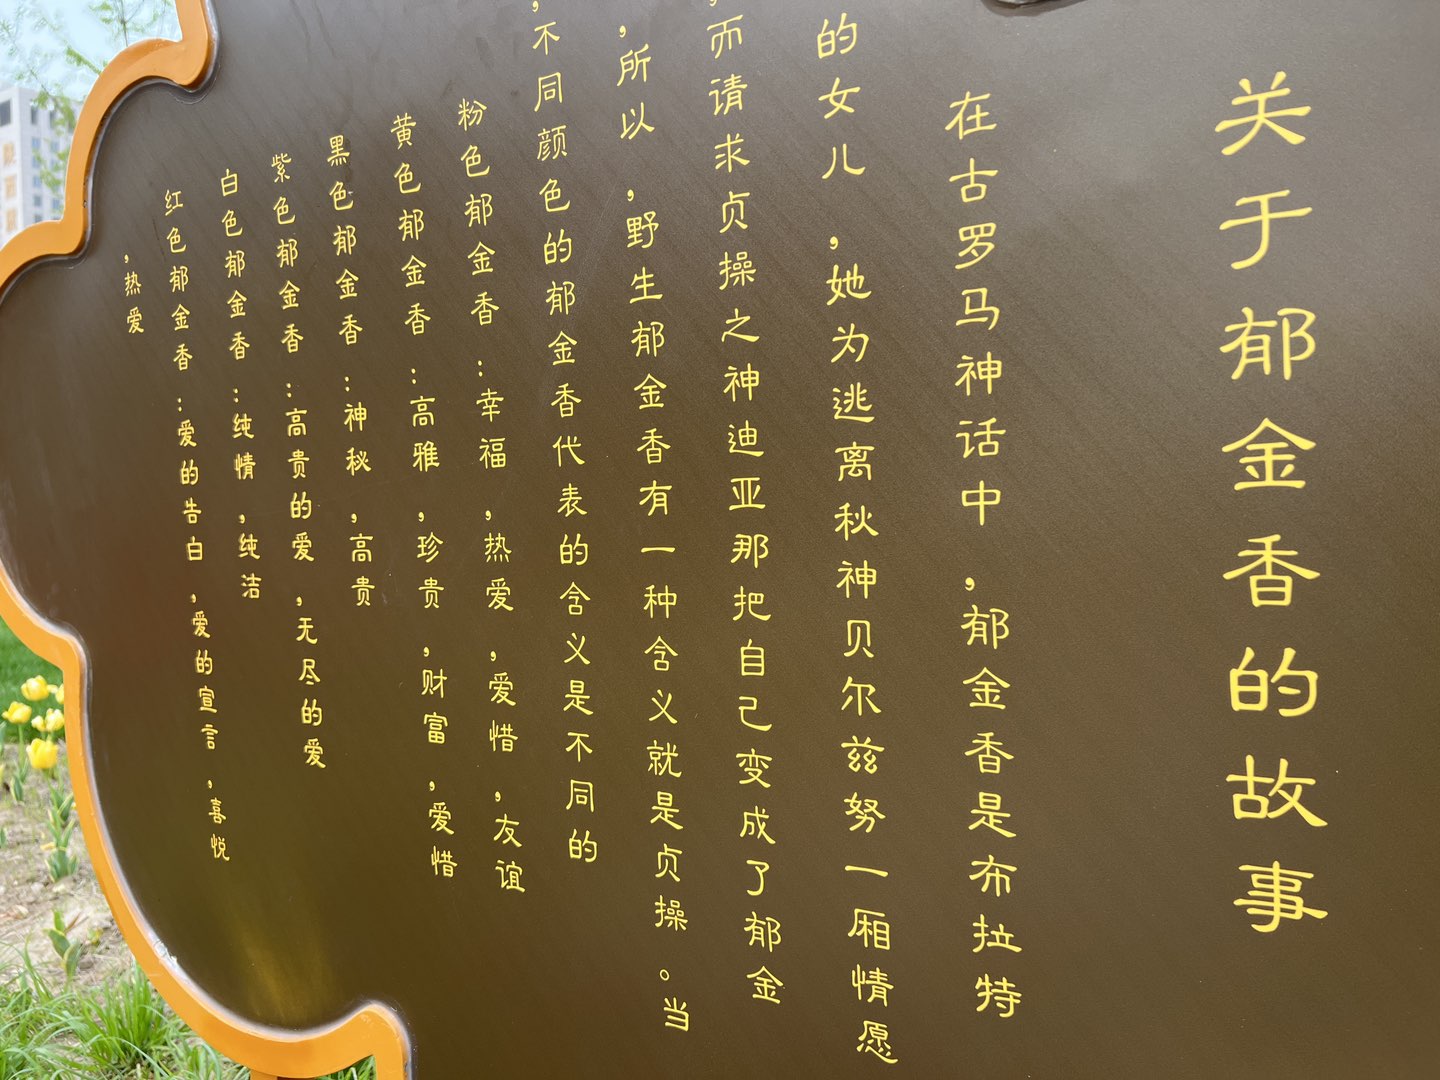 关于郁金香的故事
在古罗马神话中，郁金香是布拉特
的女儿，她为逃离秋神贝尔兹努一厢情愿
，而请求贞操之神迪亚那把自己变成了郁金
，所以，野生郁金香有一种含义就是贞操。当
，不同颜色的郁金香代表的含义是不同的
粉色郁金香：幸福，热爱，爱惜，友谊
黄色郁金香：高雅，珍贵，财富，爱惜
黑色郁金香：神秘，高贵
紫色郁金香：高贵的爱，无尽的爱
白色郁金香：纯情，纯洁
红色郁金香：爱的告白，爱的宣言，喜悦
，热爱